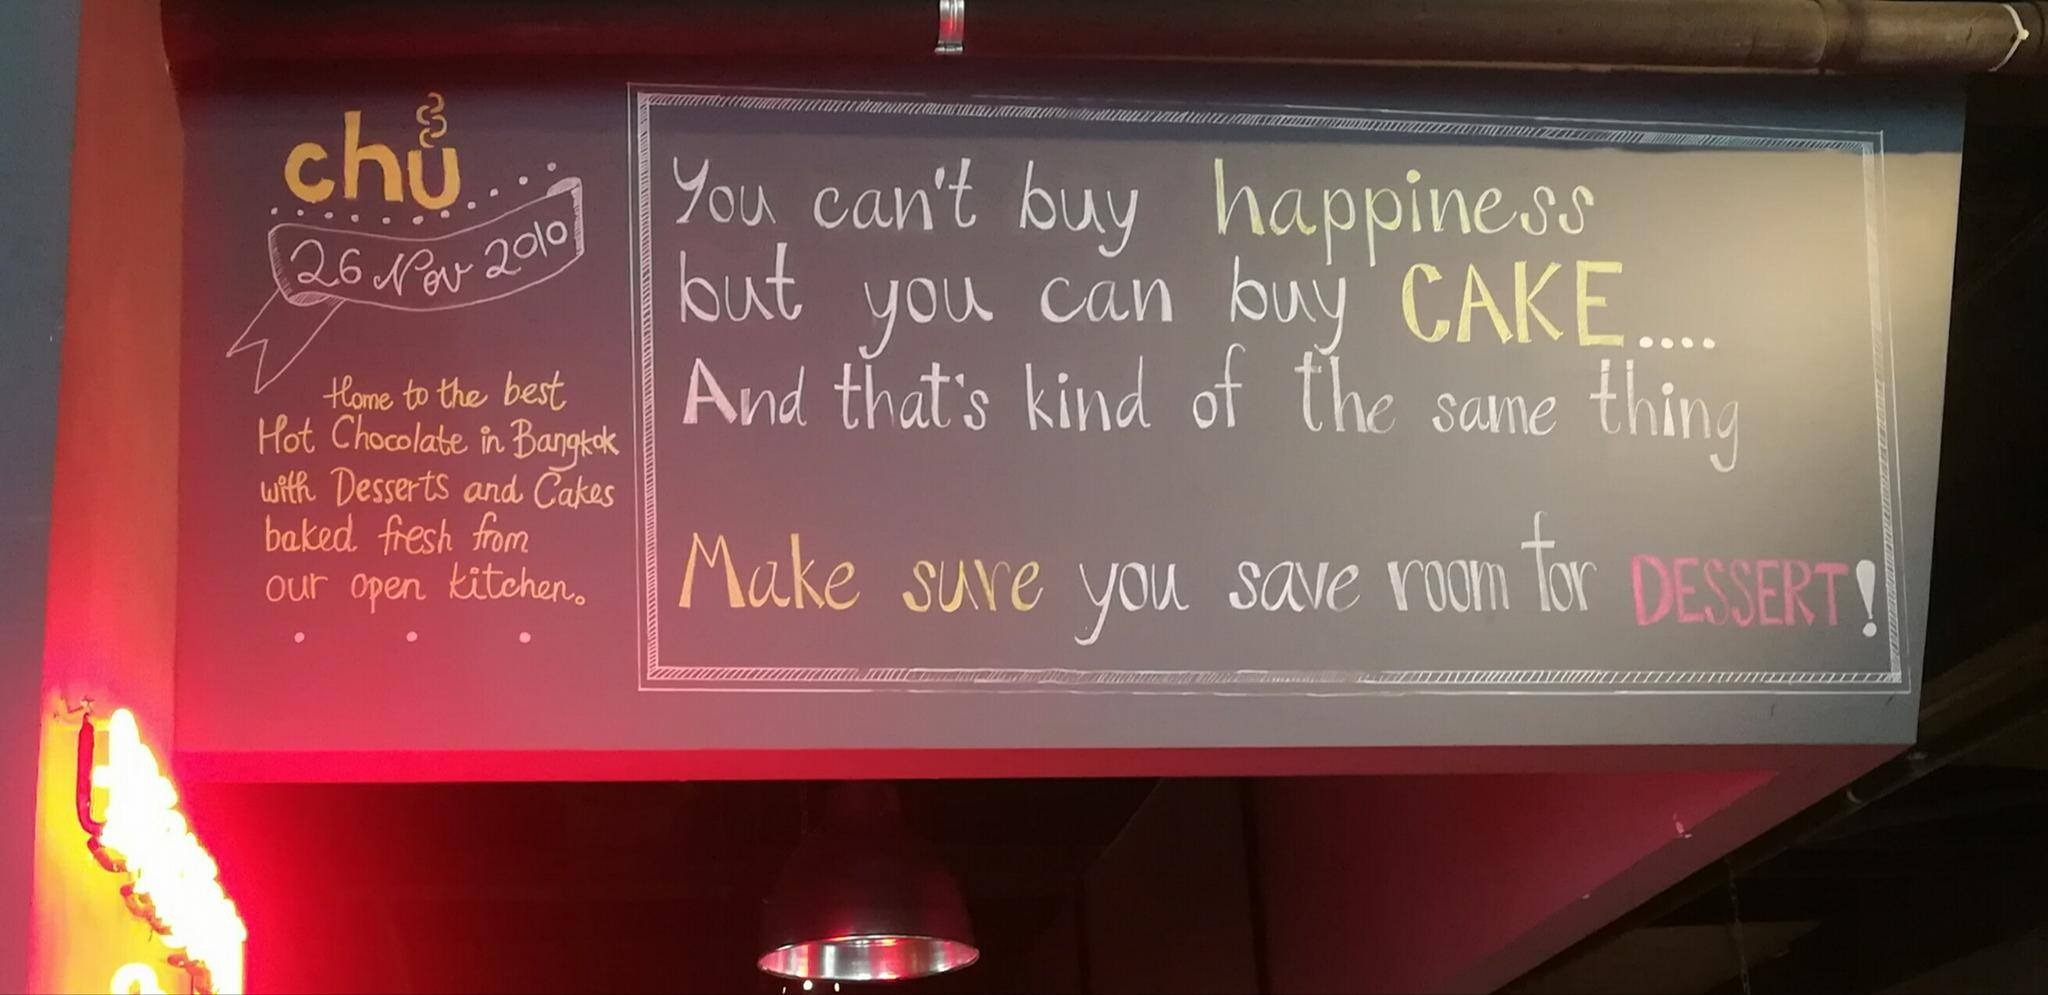 chu
26 Nov 2010
Home to the best
Hot Chocolate in Bangkok
with Desserts and Cakes
baked fresh from
our open kitchen.
You can't buy happiness
but you can buy CAKE....
And that's kind of the same thing
Make sure you save room for DESSERT!